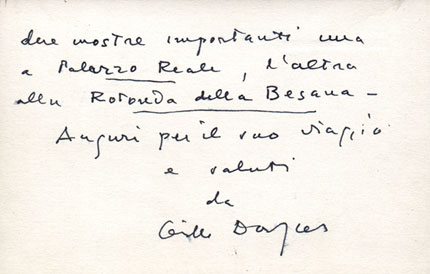 due mostre importanti una
a Palazzo Reale, l'altra
alla Rotonda della Besana -
Auguri per il suo viaggio
e saluti
da
Gillo Dorfles